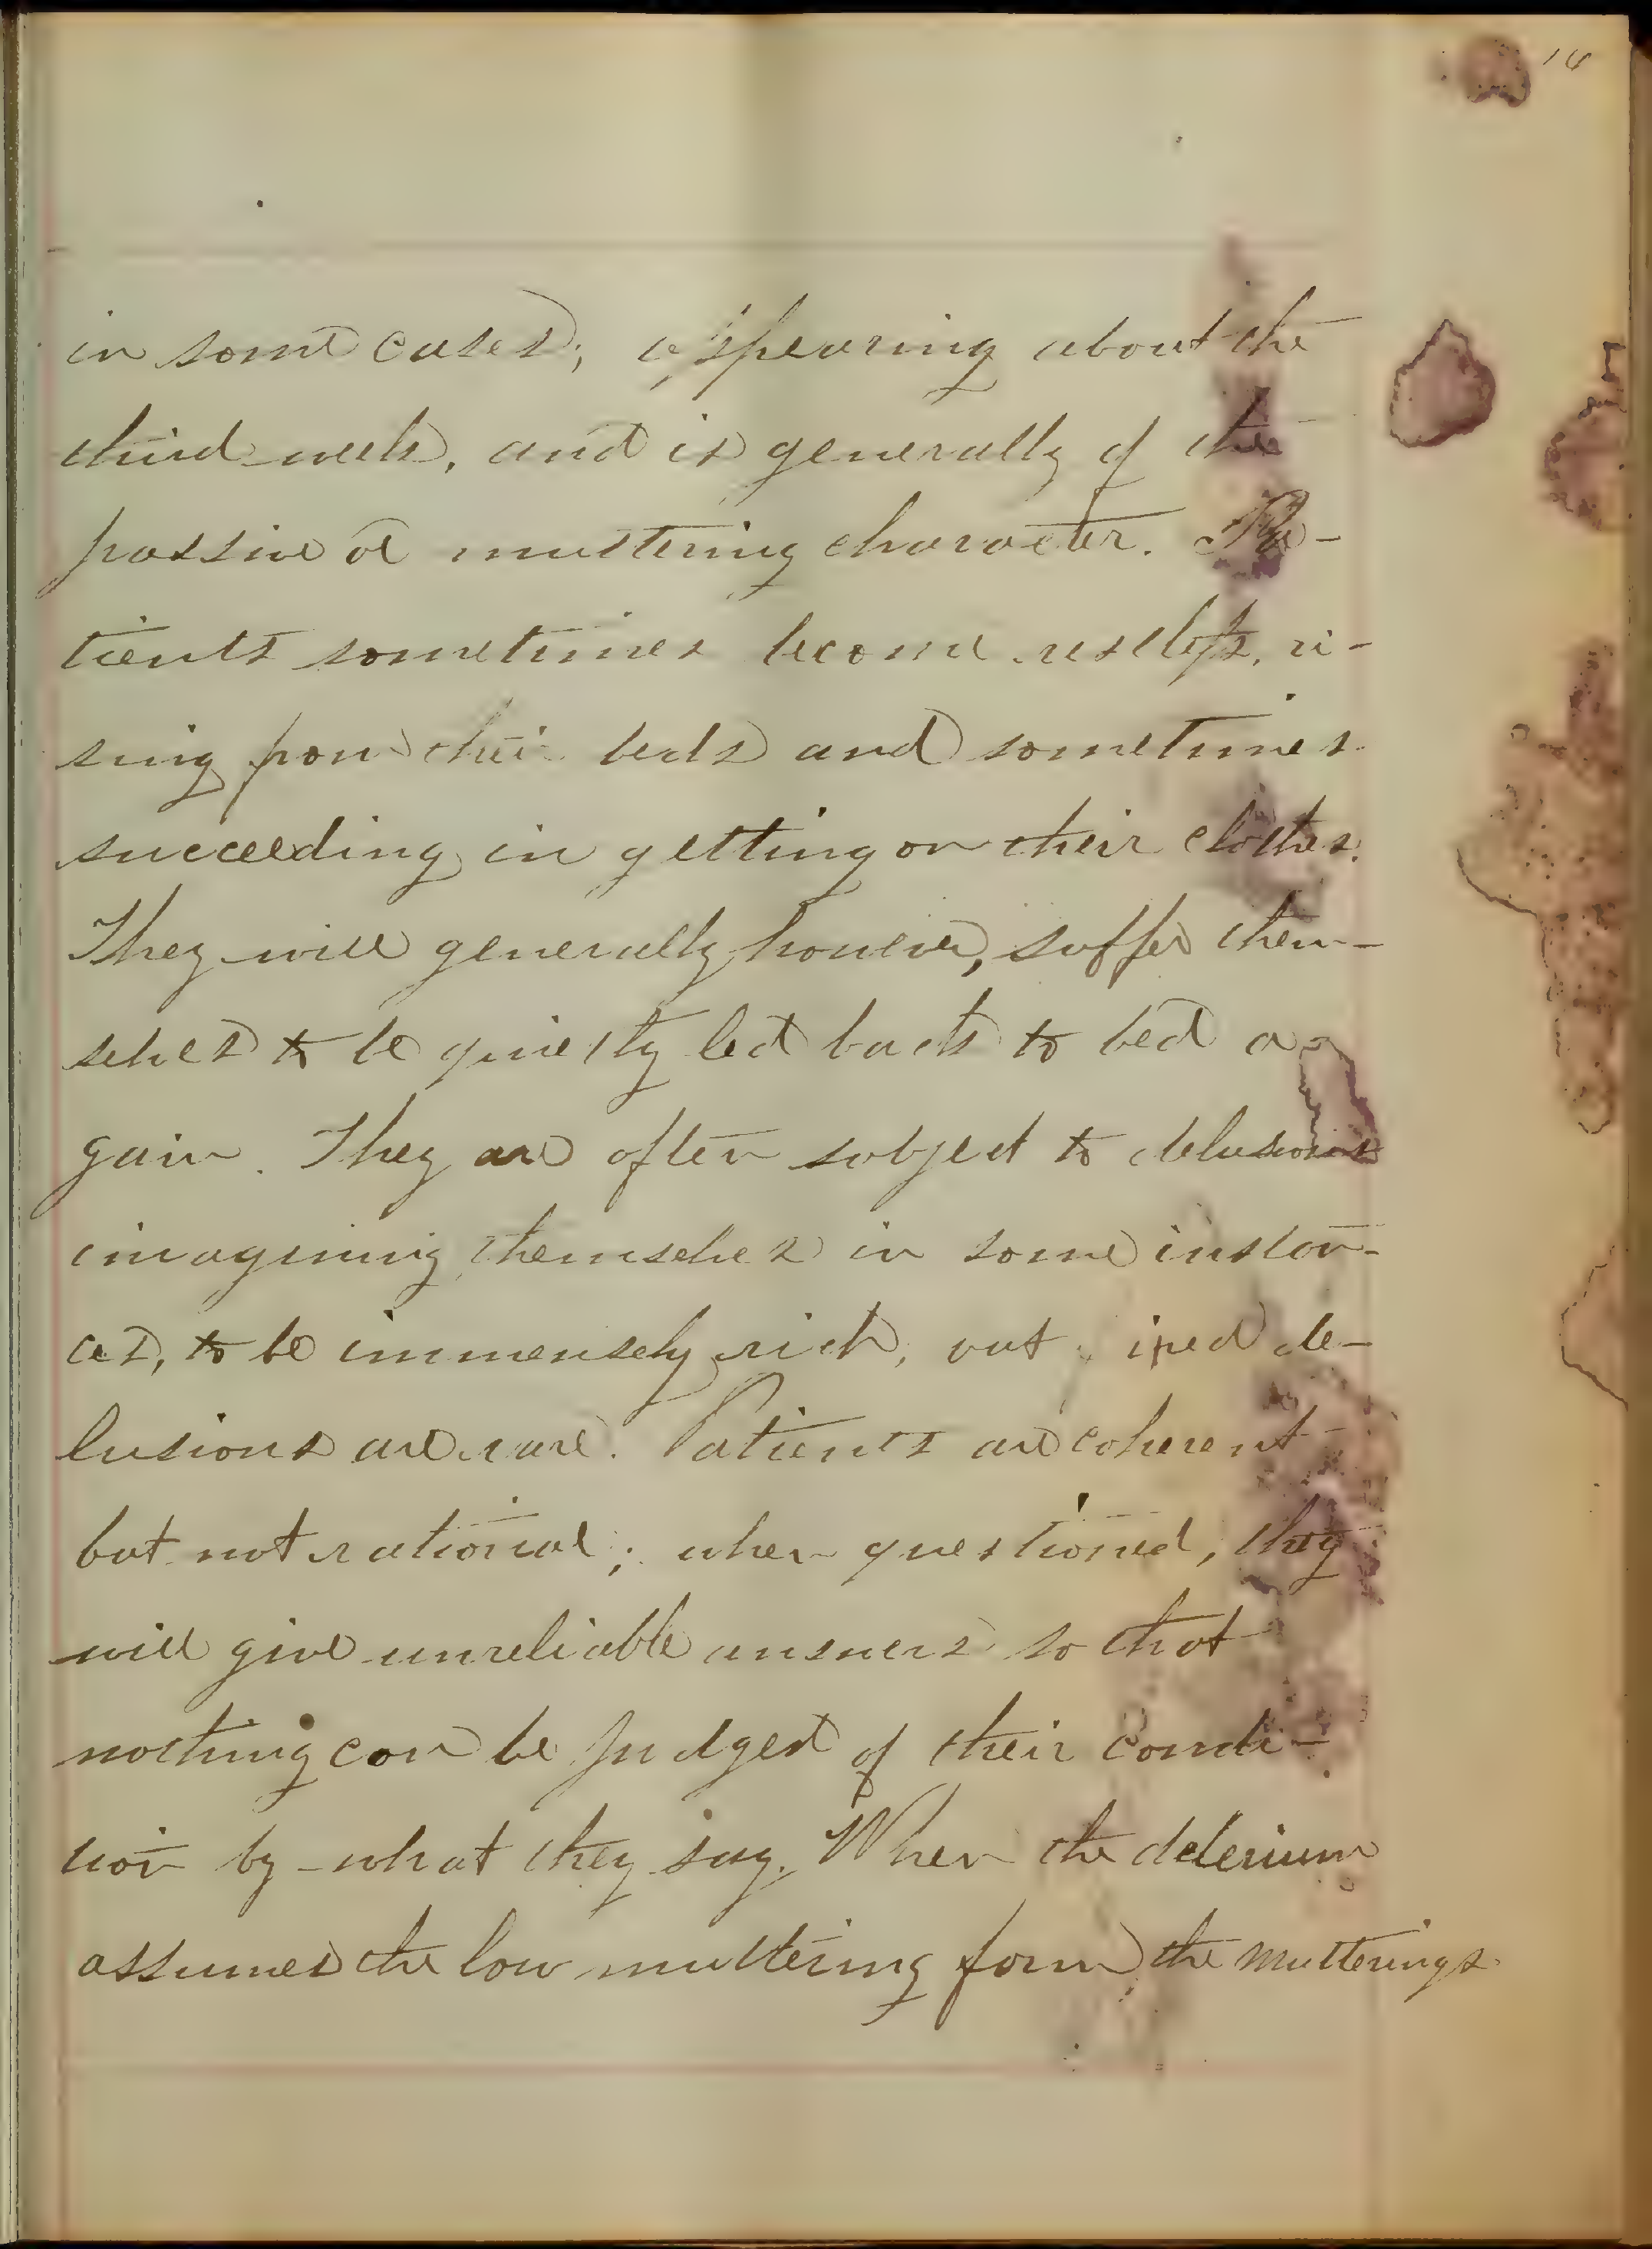 in some cases; appearing about the
third week, and is generally of the
passive or muttering character. Pa-
tients sometimes become restless, ri-
sing from their beds and sometimes
succeeding in getting on their clothes.
They will generally however, suffer them-
selves to be quietly led back to bed a-
gain. They are often subject to delusions
imagining themselves in some instan-
ces, to be immensely rich, but fixed de-
lusions are rare. Patients are coherent
but not rational; when questioned, they
will give unreliable answers so that
nothing can be judged of their condi-
tion by what they say. When the delerium
assumes the low muttering form, the mutterings